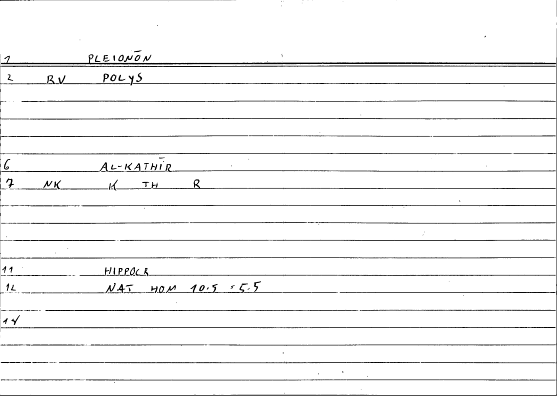 1 PLEIONŌN
2 RV POLYS
6 AL-KATHĪR
7 NK K TH R
11 HIPPOCR
12 NAT HOM 10.5 = 5.5
14